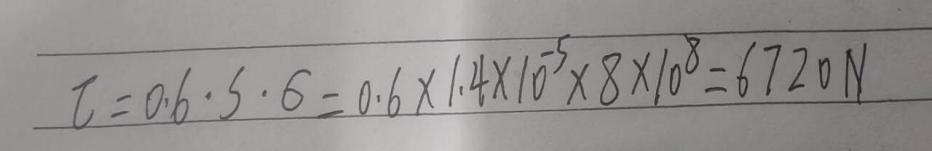 τ = 0.6 · S · 6 = 0.6 × 1.4 × 10⁻⁵ × 8 × 10⁸ = 6720N